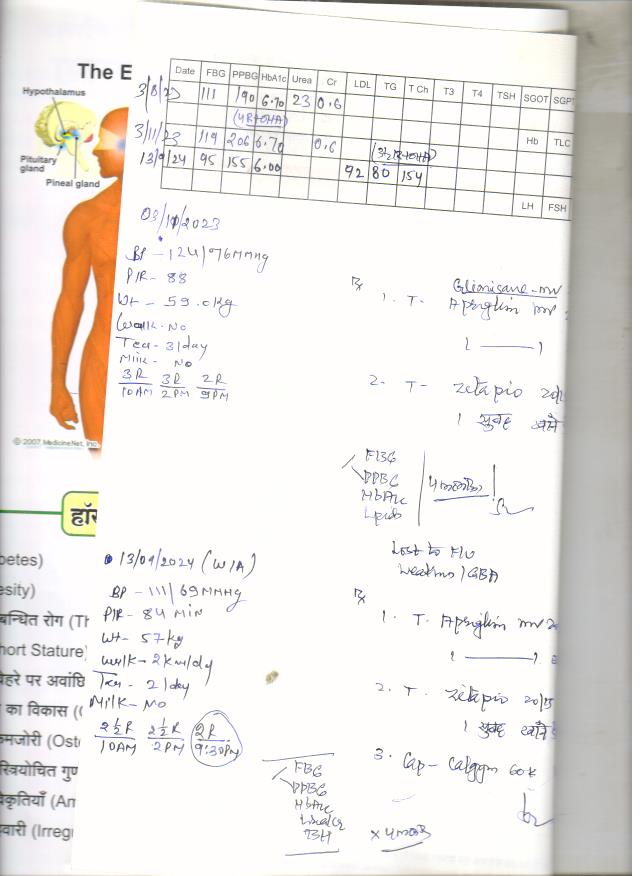 The E
Hypothalamus
Pituitary
gland
Pineal gland
© 2007 MedicineNet, Inc
हॉर
betes)
esity)
बन्धित रोग (Th
hort Stature)
चेहरे पर अवांछि
का विकास ((
कमजोरी (Oste
स्त्रियोचित गुण
विकृतियाँ (An
वारी (Irregu
Date FBG PPBG HbA1c Urea Cr LDL TG T Ch T3 T4 TSH SGOT SGPT
3/8/23 111 190 6.70 23 0.6
(4R+OHA)
3/11/23 119 206 6.70 0.6 Hb TLC
(3½R+OHA)
13/9/24 95 155 6.00 92 80 154
LH FSH
03/11/2023
BP - 124/76 MMHg
P/R - 88
Wt - 59.0kg
Walk - No
Tea - 3/day
Milk - No
3R 3R 2R
10AM 2PM 9PM
Rx
1. T.
1 ——— 1
2. T - Zetapio 20/15
1 सुबह
FBG
PPBG
HbA1c
Lipids
13/09/2024 (W/A)
BP - 111/69 MMHg
P/R - 84 Min
Wt - 57kg
Walk - 2km/day
Tea - 2/day
Milk - No
2½R 2½R 2R
10AM 2PM 9:30PM
Lost to F/U
Rx
1. T.
1 ——— 1.
2. T. Zetapio 20/15
1 सुबह
3. Cap - 60K
FBG
PPBG
HbA1c